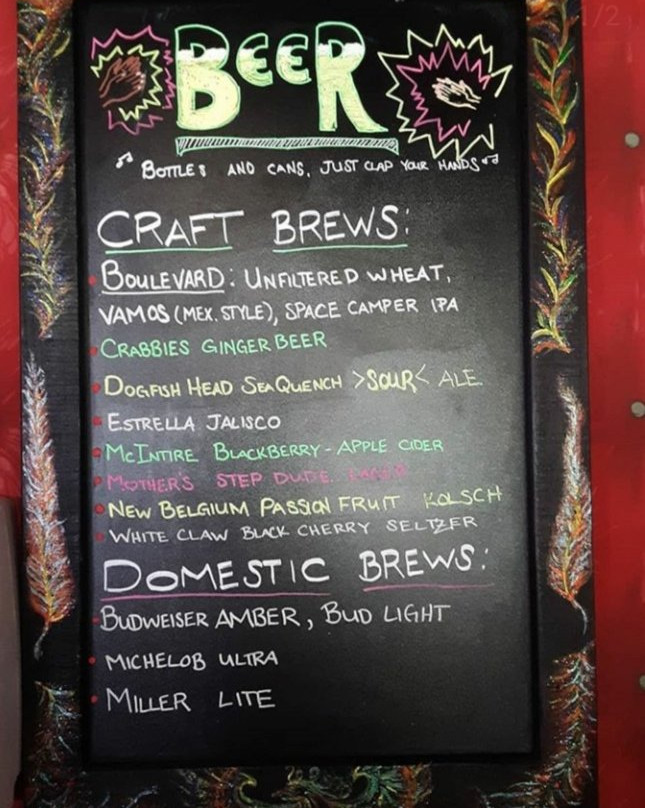 BEER
BOTTLES AND CANS, JUST CLAP YOUR HANDS
CRAFT BREWS:
BOULEVARD: UNFILTERED WHEAT,
VAMOS (MEX. STYLE), SPACE CAMPER IPA
CRABBIES GINGER BEER
DOGFISH HEAD SEAQUENCH >SOUR< ALE
ESTRELLA JALISCO
MCINTIRE BLACKBERRY-APPLE CIDER
MOTHER'S STEP DUDE LAGER
NEW BELGIUM PASSION FRUIT KOLSCH
WHITE CLAW BLACK CHERRY SELTZER
DOMESTIC BREWS:
BUDWEISER AMBER, BUD LIGHT
MICHELOB ULTRA
MILLER LITE